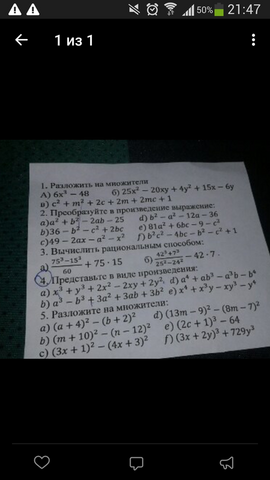 50% 21:47
1 из 1
1. Разложить на множители
А) 6x³ − 48 б) 25x² − 20xy + 4y² + 15x − 6y
в) c² + m² + 2c + 2m + 2mc + 1
2. Преобразуйте в произведение выражение:
a) a² + b² − 2ab − 25 d) b² − a² − 12a − 36
b) 36 − b² − c² + 2bc e) 81a² + 6bc − 9 − c²
c) 49 − 2ax − a² − x² f) b²c² − 4bc − b² − c² + 1
3. Вычислить рациональным способом:
а) (75³ − 15³)/60 + 75 · 15 б) (42³ + 7³)/(25² − 24²) − 42 · 7.
4. Представьте в виде произведения:
a) x³ + y³ + 2x² − 2xy + 2y² d) a⁴ + ab³ − a³b − b⁴
b) a³ − b³ + 3a² + 3ab + 3b² e) x⁴ + x³y − xy³ − y⁴
5. Разложите на множители:
a) (a + 4)² − (b + 2)² d) (13m − 9)² − (8m − 7)²
b) (m + 10)² − (n − 12)² e) (2c + 1)³ − 64
c) (3x + 1)² − (4x + 3)² f) (3x + 2y)³ + 729y³